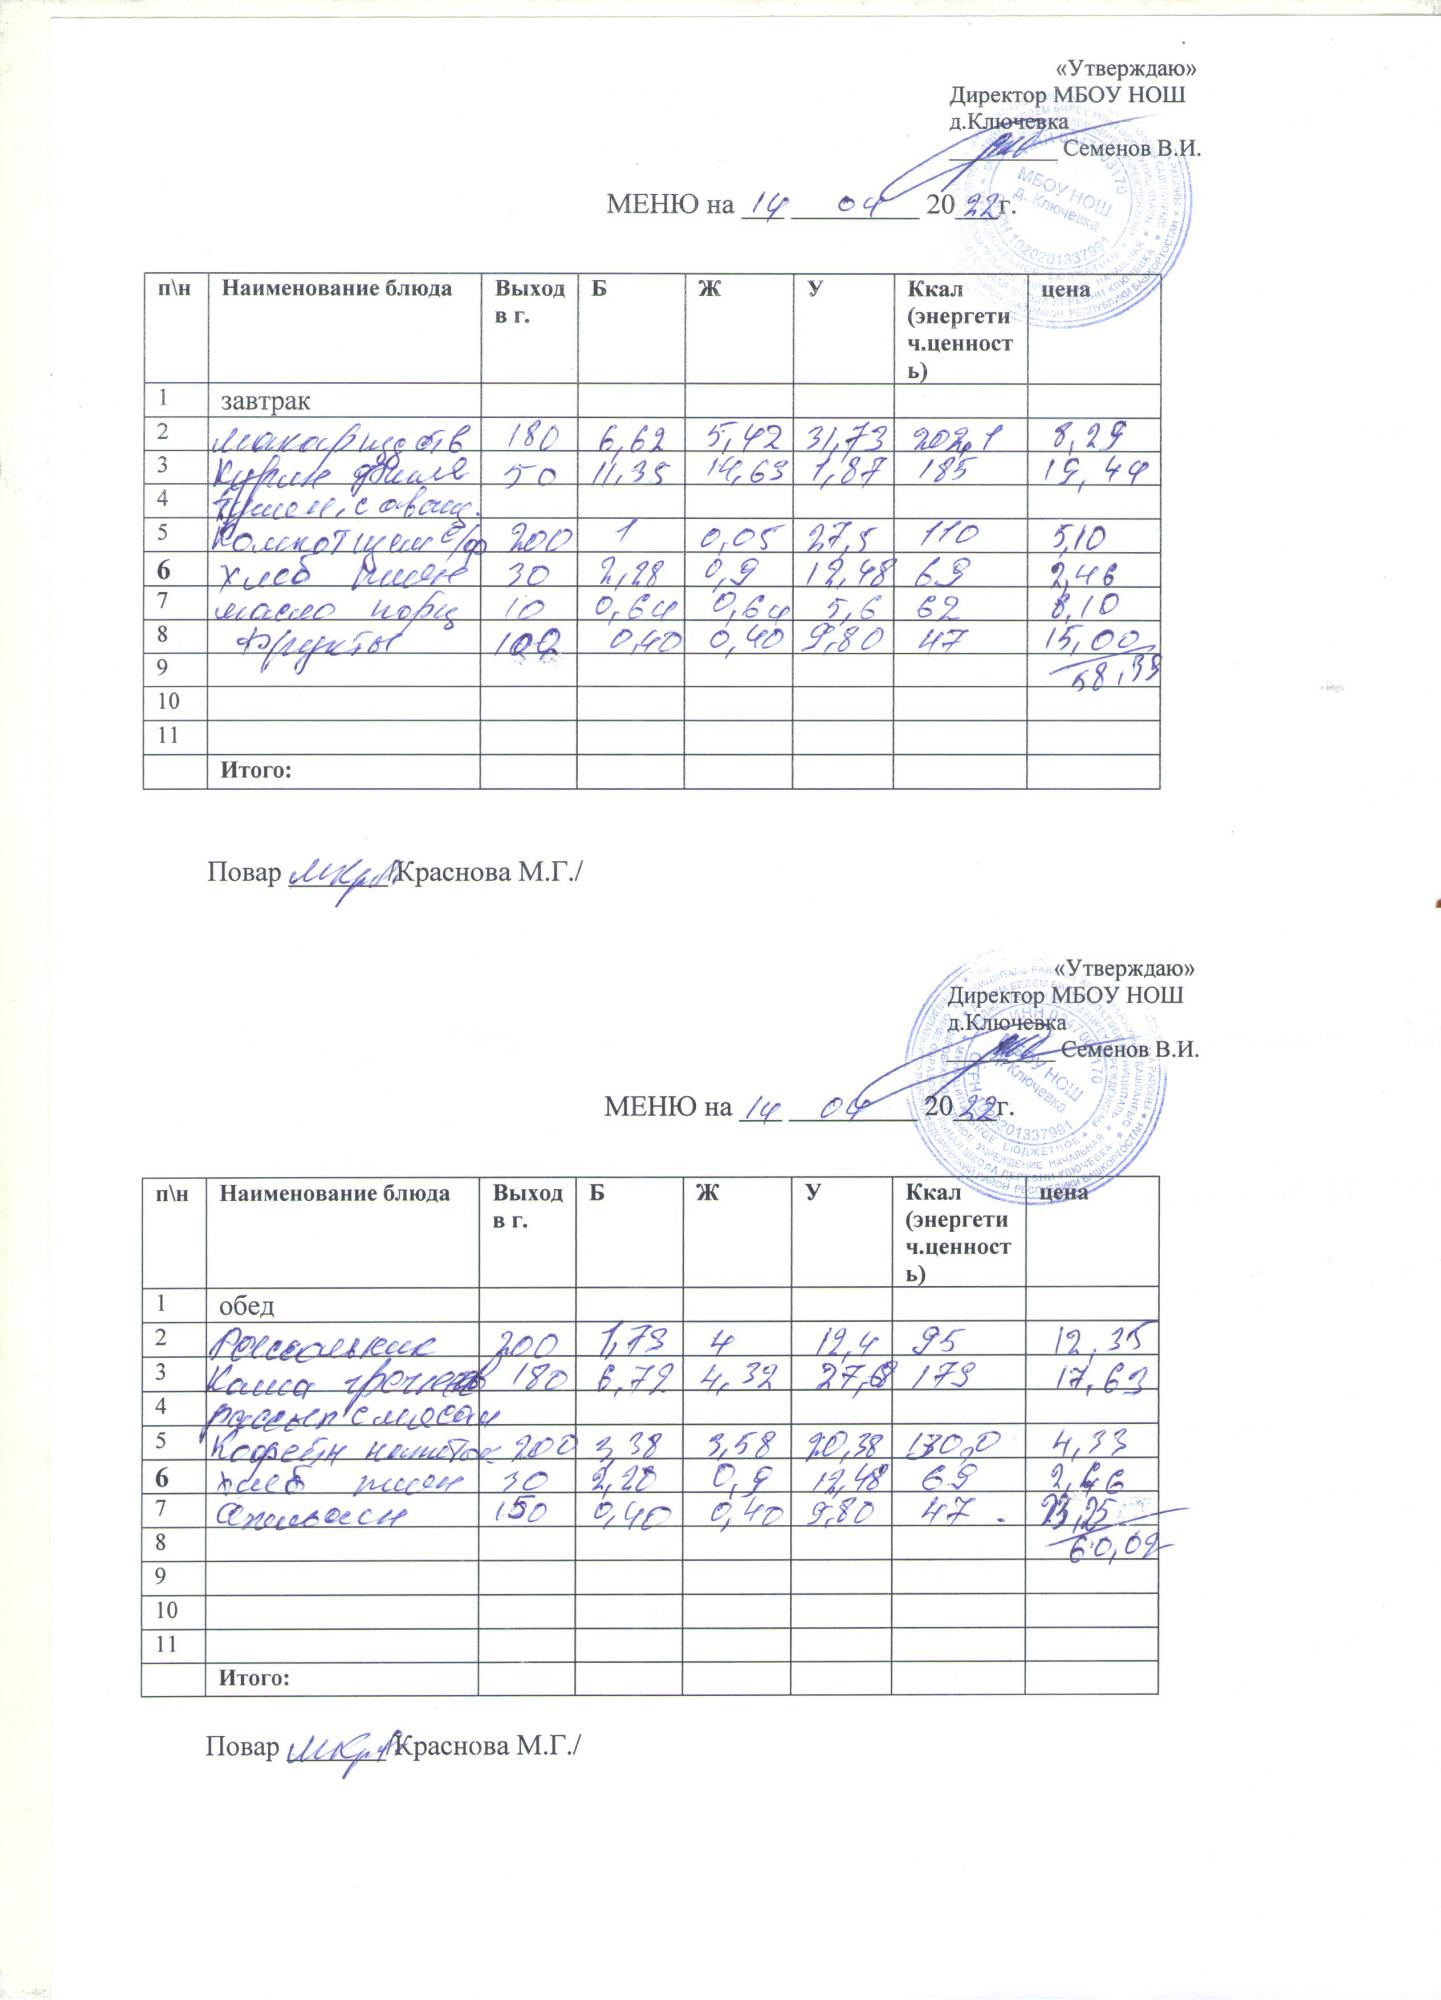 «Утверждаю»
Директор МБОУ НОШ
д.Ключевка
Семенов В.И.
МЕНЮ на 14 04 2022г.
МБОУ НОШ
д. Ключевка
п\н Наименование блюда Выход в г. Б Ж У Ккал (энергетич.ценность) цена
1 завтрак
2 180 6,62 5,42 31,73 202,1 8,29
3 Курин филе 50 11,35 14,63 1,87 185 19,44
4 тушен. с овощ.
5 200 1 0,05 27,5 110 5,10
6 хлеб пшен 30 2,28 0,9 12,48 69 2,46
7 масло порц 10 0,64 0,64 5,6 62 8,10
8 Фрукты 100 0,40 0,40 9,80 47 15,00
9 58,39
10
11
Итого:
Повар /Краснова М.Г./
«Утверждаю»
Директор МБОУ НОШ
д.Ключевка
Семенов В.И.
МЕНЮ на 14 04 2022г.
МБОУ НОШ
д. Ключевка
п\н Наименование блюда Выход в г. Б Ж У Ккал (энергетич.ценность) цена
1 обед
2 Рассольник 200 1,73 4 12,4 95 12,35
3 Каша гречнев 180 6,72 4,32 27,8 179 17,63
4 рассып с мясом
5 Кофейн напиток 200 3,38 3,58 20,38 130,0 4,33
6 хлеб пшен 30 2,28 0,9 12,48 69 2,46
7 Апельсин 150 0,40 0,40 9,80 47 23,25
8 60,02
9
10
11
Итого:
Повар /Краснова М.Г./